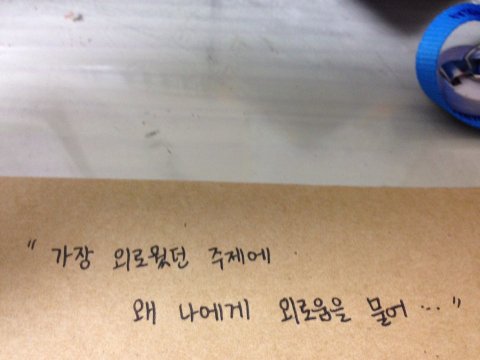 " 가장 외로웠던 주제에
왜 나에게 외로움을 물어 ... "